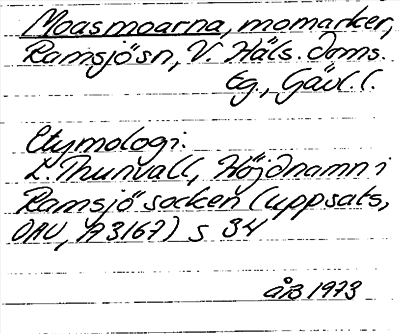 Moasmoarna, momarker,
Ramsjösn, V. Häls. doms.
Eg., Gävl. l.
Etymologi:
L. Thunvall, Höjdnamn i
Ramsjö socken (uppsats,
OAU, A3167) s 34
ÅB 1973